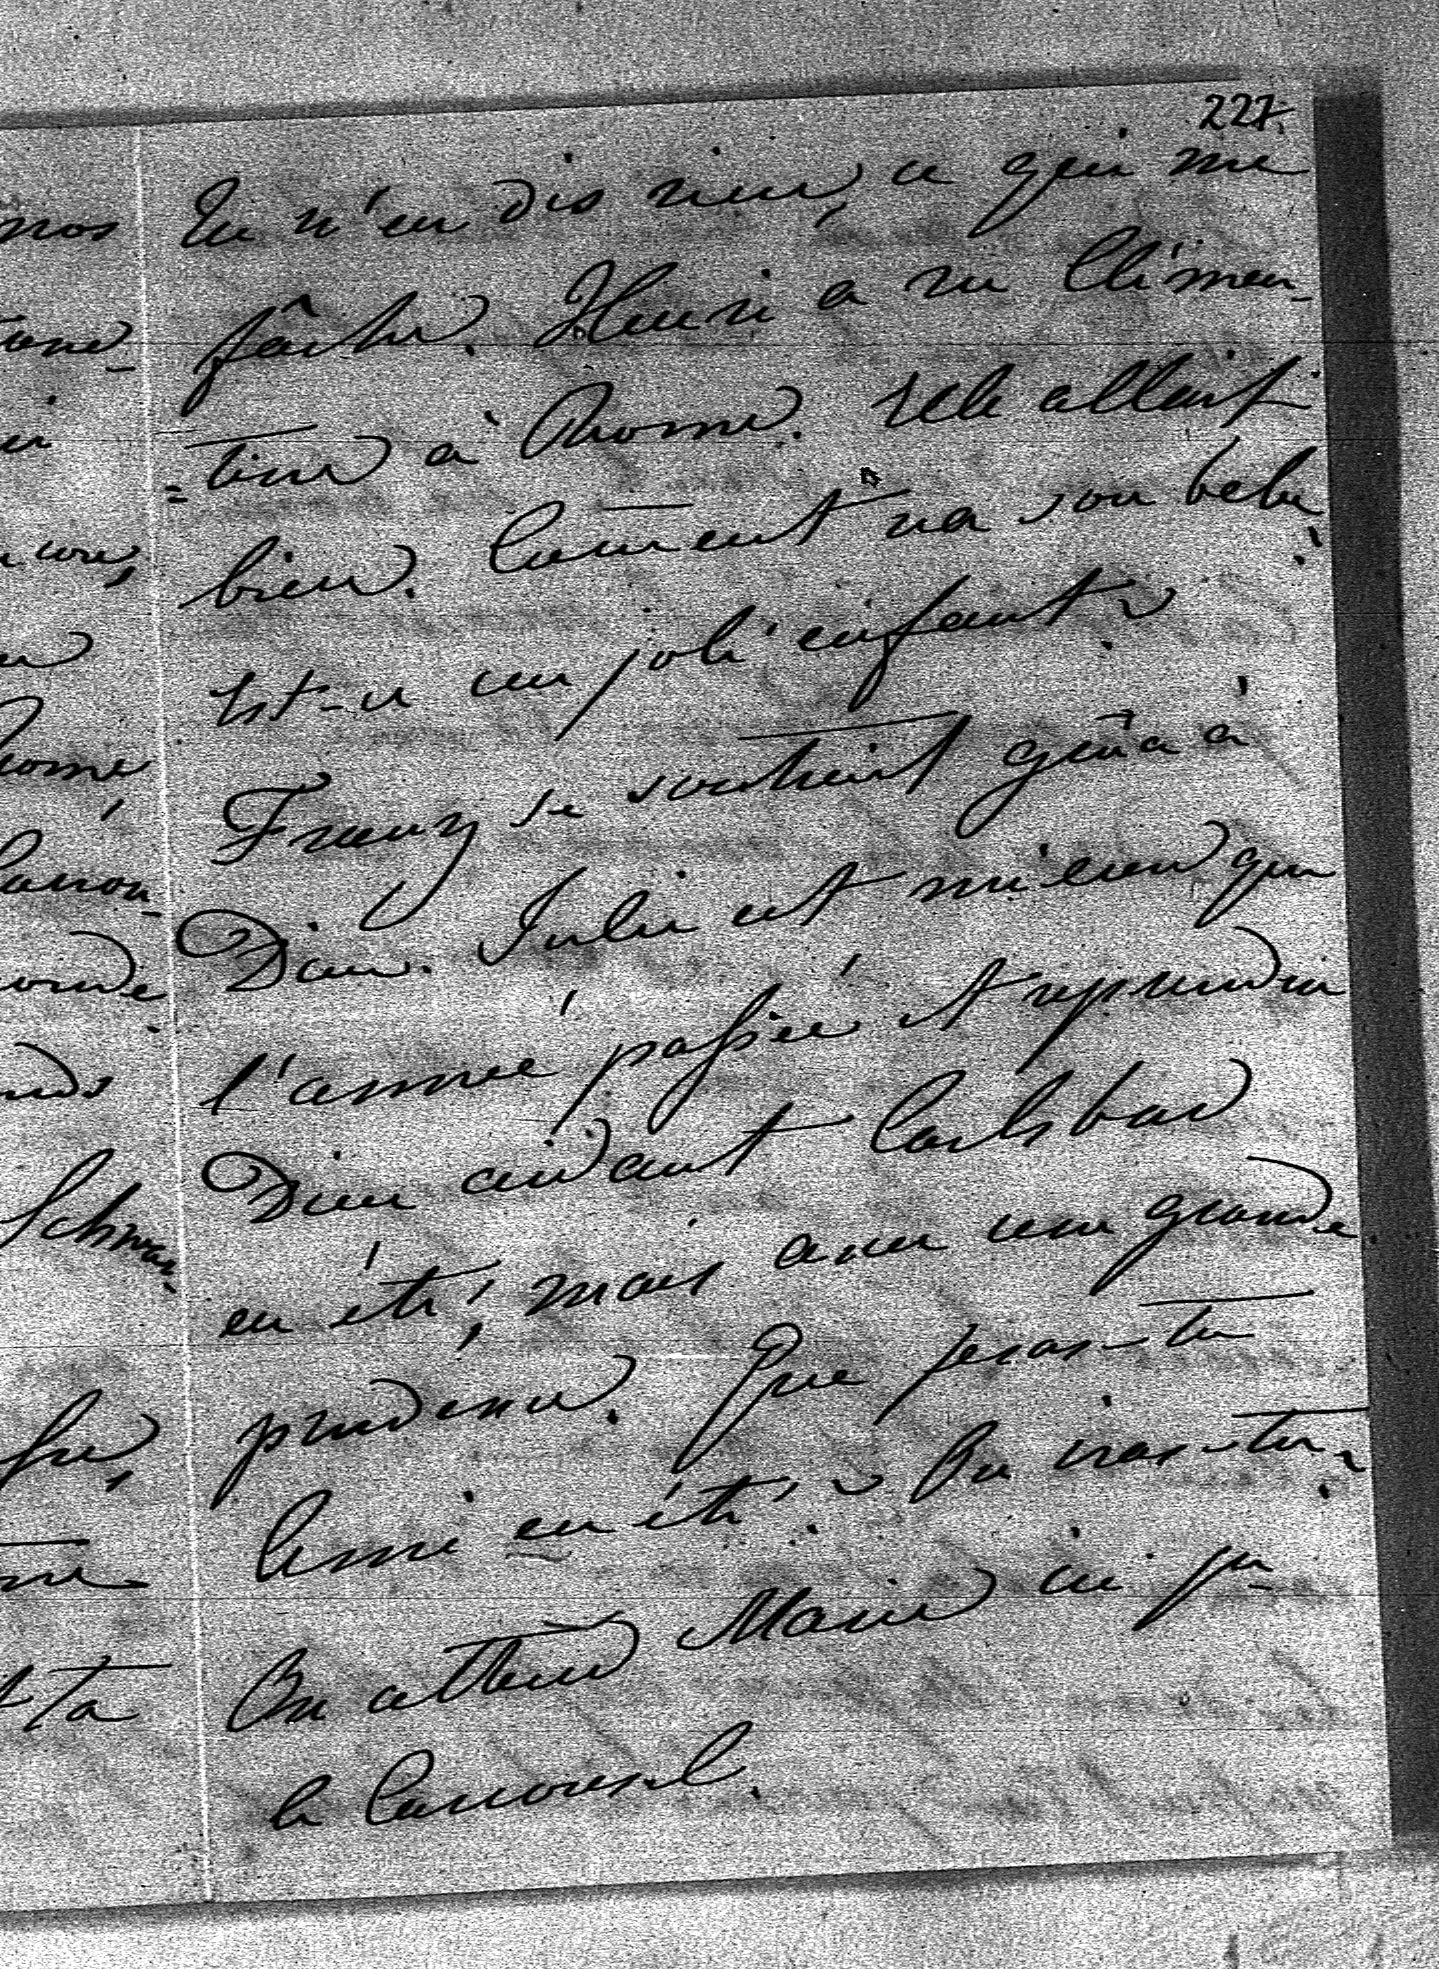 227.
Tu n'en dis rien, ce qui me
fâche. Henri a vu Clémen-
=tine à Rome. Elle allait
bien. Comment va son bébé?
Est-ce un joli enfant?
Franz se soutient grâce à
Dieu. Julie est mieux que
l'année passée et reprendra
Dieu aidant Carlsbad
en été, mais avec une grande
prudence. Que feras-tu
en été? Ou iras-tu?
On attend Marie ici pr
le Carrousel.
nos
tane-
Rome
Carrou-
monde.
Schwar-
ta